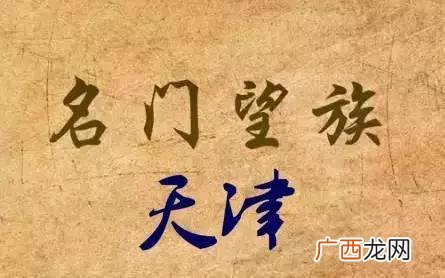 名门望族
天津
广西龙网